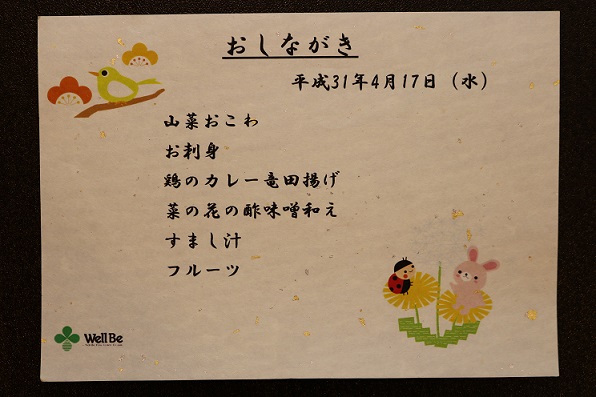 おしながき
平成31年4月17日（水）
山菜おこわ
お刺身
鶏のカレー竜田揚げ
菜の花の酢味噌和え
すまし汁
フルーツ
Well Be